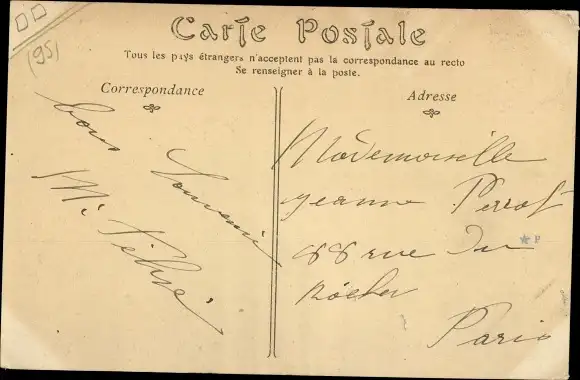 (95)
Carte Postale
Tous les pays étrangers n'acceptent pas la correspondance au recto
Se renseigner à la poste.
Correspondance
Bons
Souvenirs
Adresse
Mademoiselle
Jeanne Perrot
88 rue du
Rocher
Paris